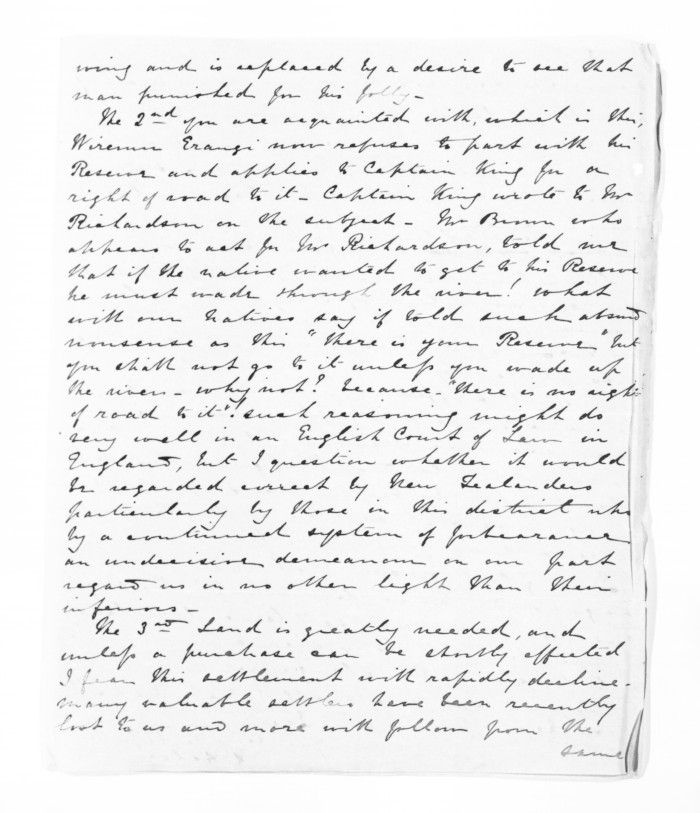 wing and is replaced by a desire to see that
man punished for his folly -
The 2nd you are acquainted with, which is this,
Wiremu Erangi now refuses to part with his
Reserve and applies to Captain King for a
right of road to it - Captain King wrote to Mr
Richardson on the subject - Mr Brown who
appears to act for Mr Richardson, told me
that if the native wanted to get to his Reserve
he must wade through the river! What
will our Natives say if told such absurd
nonsense as this "There is your Reserve" but
you shall not go to it unless you wade up
the river - why not? because - "there is no right
of road to it"! such reasoning might do
very well in an English Court of Law in
England, but I question whether it would
be regarded correct by New Zealanders
particularly by those in this district who
by a continued system of forbearance
an undecisive demeanour on our part
regard us in no other light than their
inferiors -
The 3rd Land is greatly needed, and
unless a purchase can be shortly effected
I fear this settlement will rapidly decline -
many valuable settlers have been recently
lost to us and more will follow from the
same